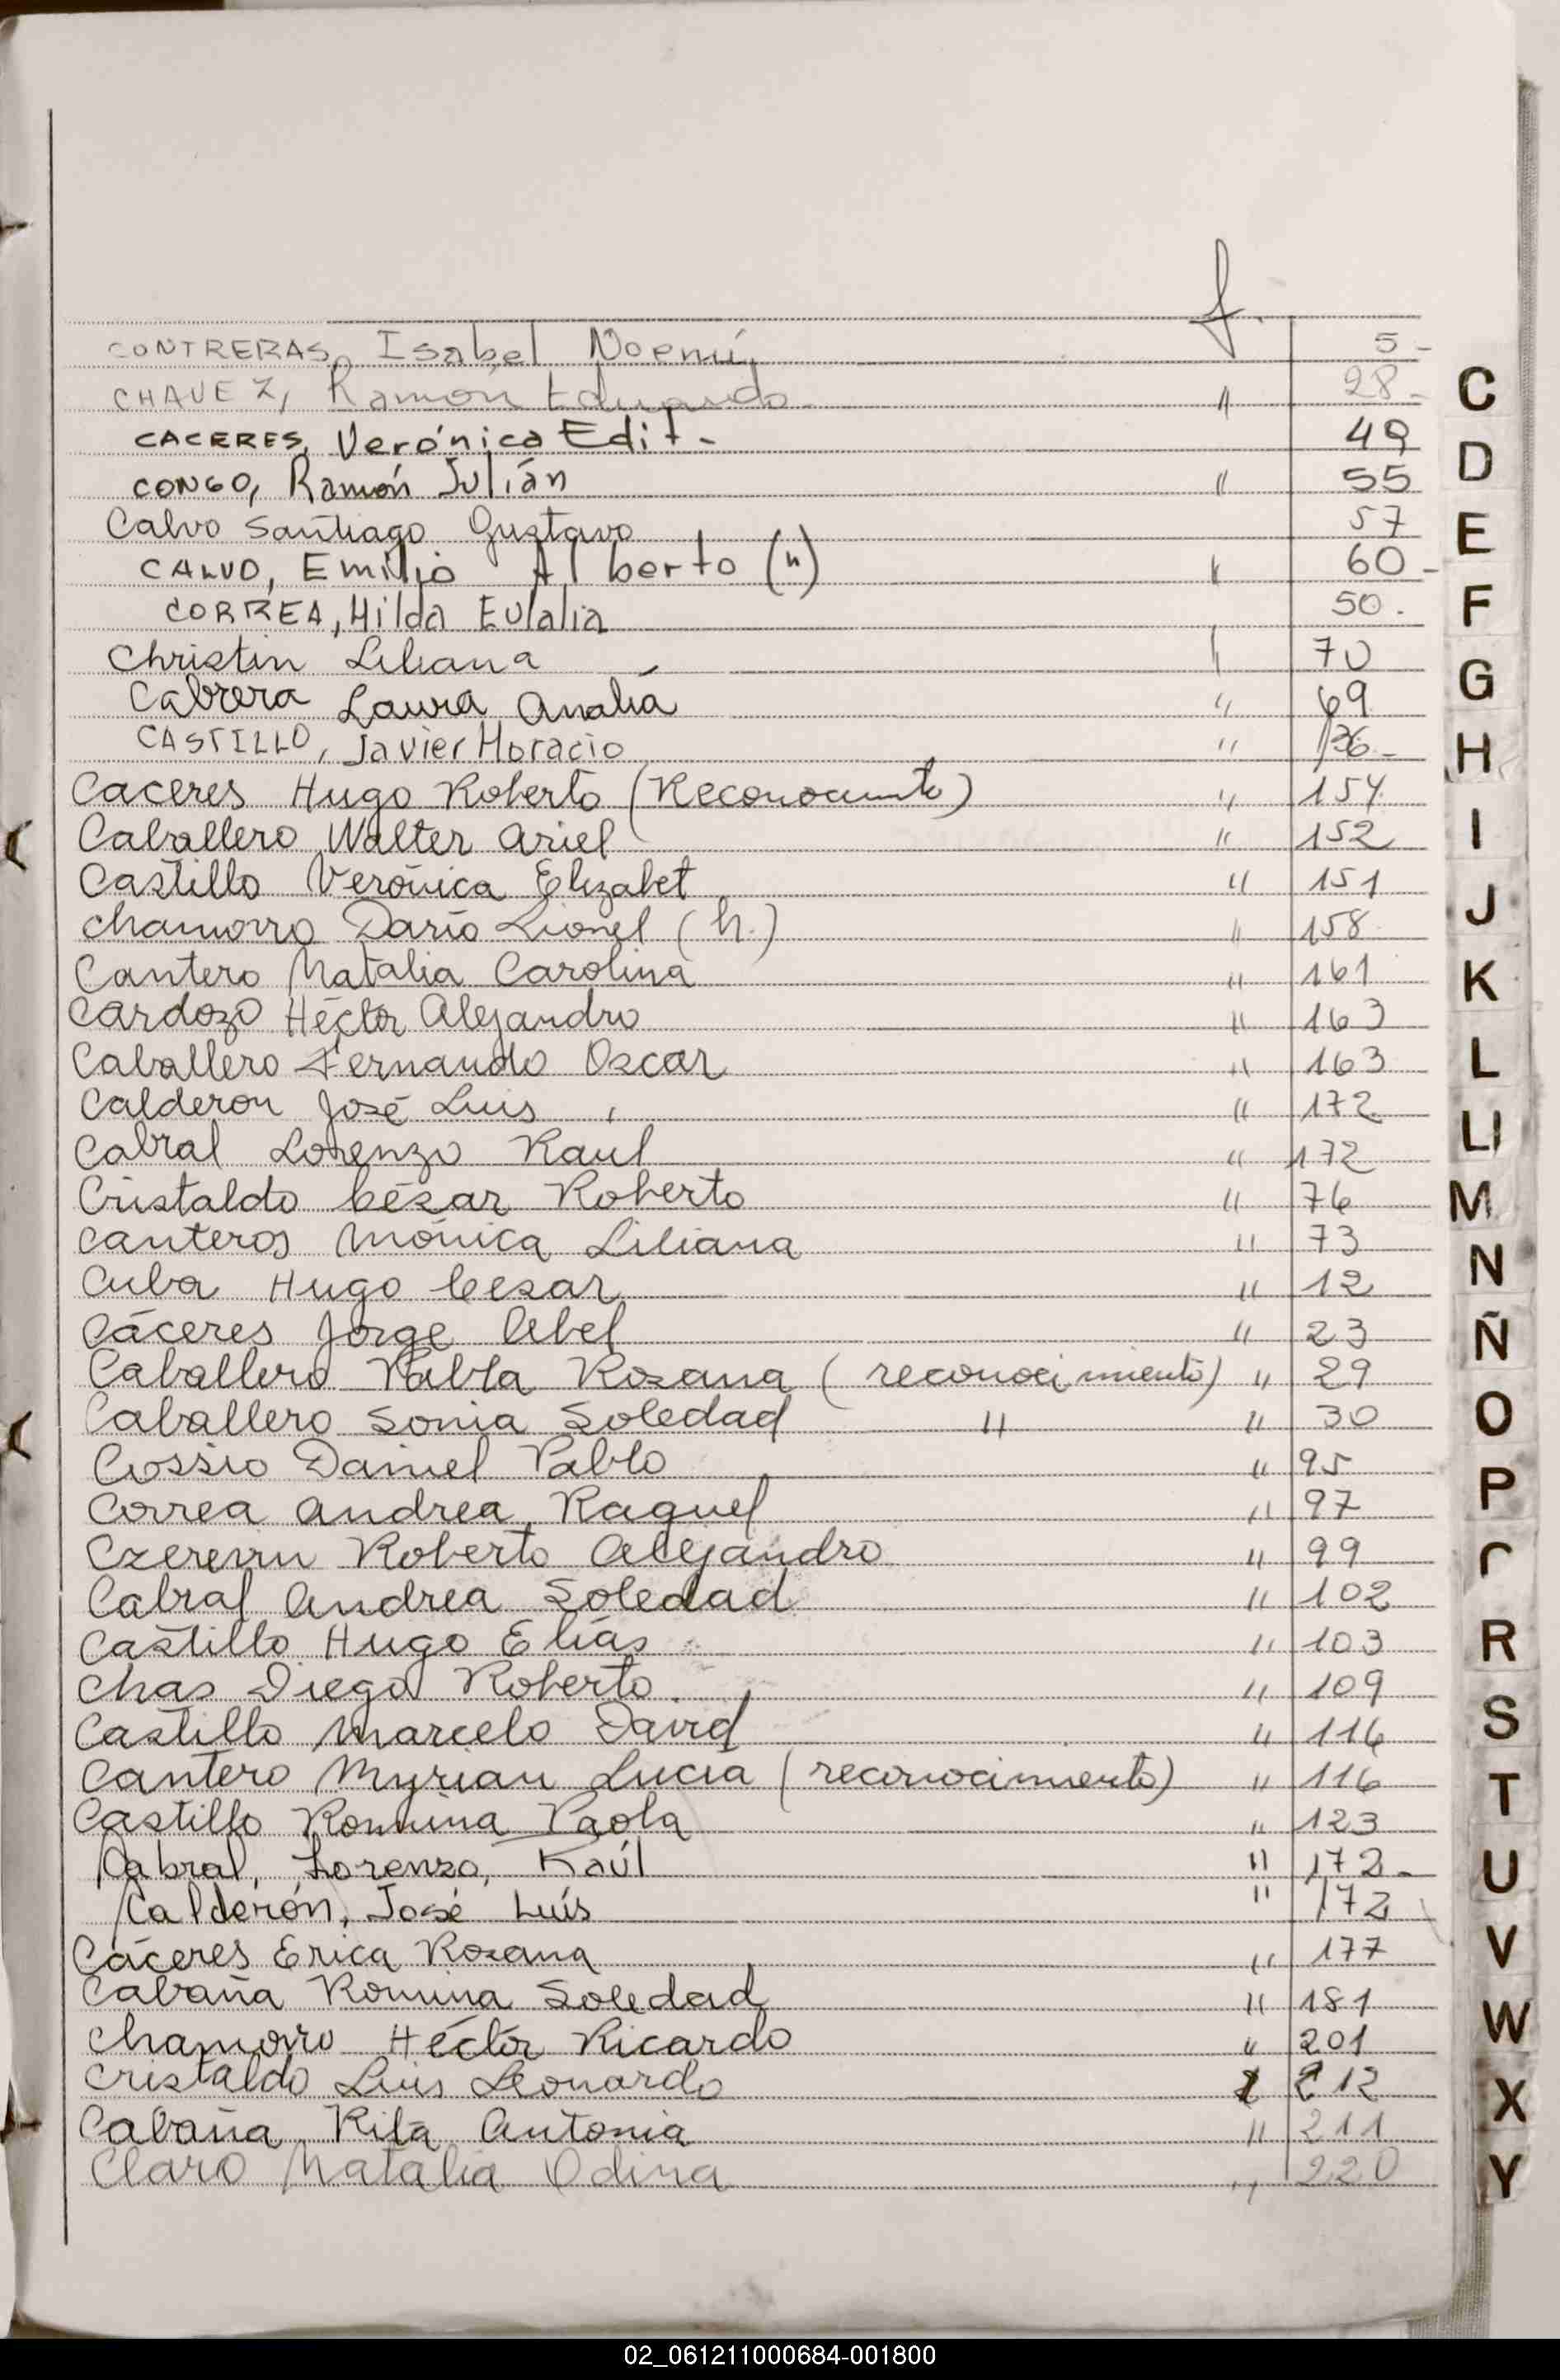 f.
CONTRERAS, Isabel Noemí 5-
CHAVEZ, Ramón Eduardo- " 28-
CACERES, Verónica Edit- 49
CONGO, Ramón Julián " 55
Calvo Santiago Gustavo 57
CALVO, Emilio Alberto (h) " 60-
CORREA, Hilda Eulalia 50.
Christin Liliana 70
Cabrera Laura Analía " 69
CASTILLO, Javier Horacio " 136-
Caceres Hugo Roberto (Reconocimto) " 154
Caballero Walter Ariel " 152
Castillo Verónica Elizabet " 151
Chamorro Darío Lionel (h.) " 158
Cantero Natalia Carolina " 161
Cardozo Héctor Alejandro " 163
Caballero Fernando Oscar " 163
Calderon José Luis " 172
Cabral Lorenzo Raul " 172
Cristaldo César Roberto " 76
Canteros Mónica Liliana " 73
Cuba Hugo Cesar " 12
Cáceres Jorge Abel " 23
Caballero Pabla Rosana (reconocimiento) " 29
Caballero Sonia Soledad " " 30
Cossio Daniel Pablo " 95
Correa Andrea Raquel " 97
Roberto Alejandro " 99
Cabral Andrea Soledad " 102
Castillo Hugo Elías " 103
Chas Diego Roberto. " 109
Castillo Marcelo David " 116
Cantero Myrian Lucia (reconocimiento) " 116
Castillo Romina Paola " 123
Cabral, Lorenzo, Raúl " 172-
Calderón, José Luís " 172
Cáceres Erica Rosana " 177
Cabaña Romina Soledad " 181
Chamorro Héctor Ricardo " 201
Cristaldo Luis Leonardo 212
Cabaña Rita Antonia " 211
Claro Natalia Odina " 220
C
D
E
F
G
H
I
J
K
L
Ll
M
N
Ñ
O
P
R
S
T
U
V
W
X
Y
02_061211000684-001800